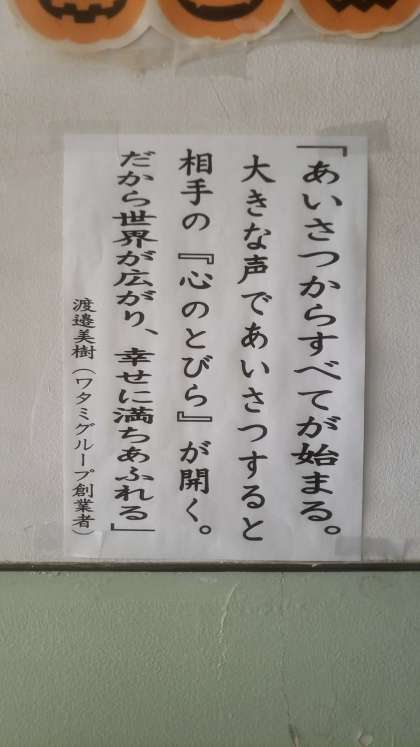 「あいさつからすべてが始まる。
大きな声であいさつすると
相手の『心のとびら』が開く。
だから世界が広がり、幸せに満ちあふれる」
渡邉美樹（ワタミグループ創業者）